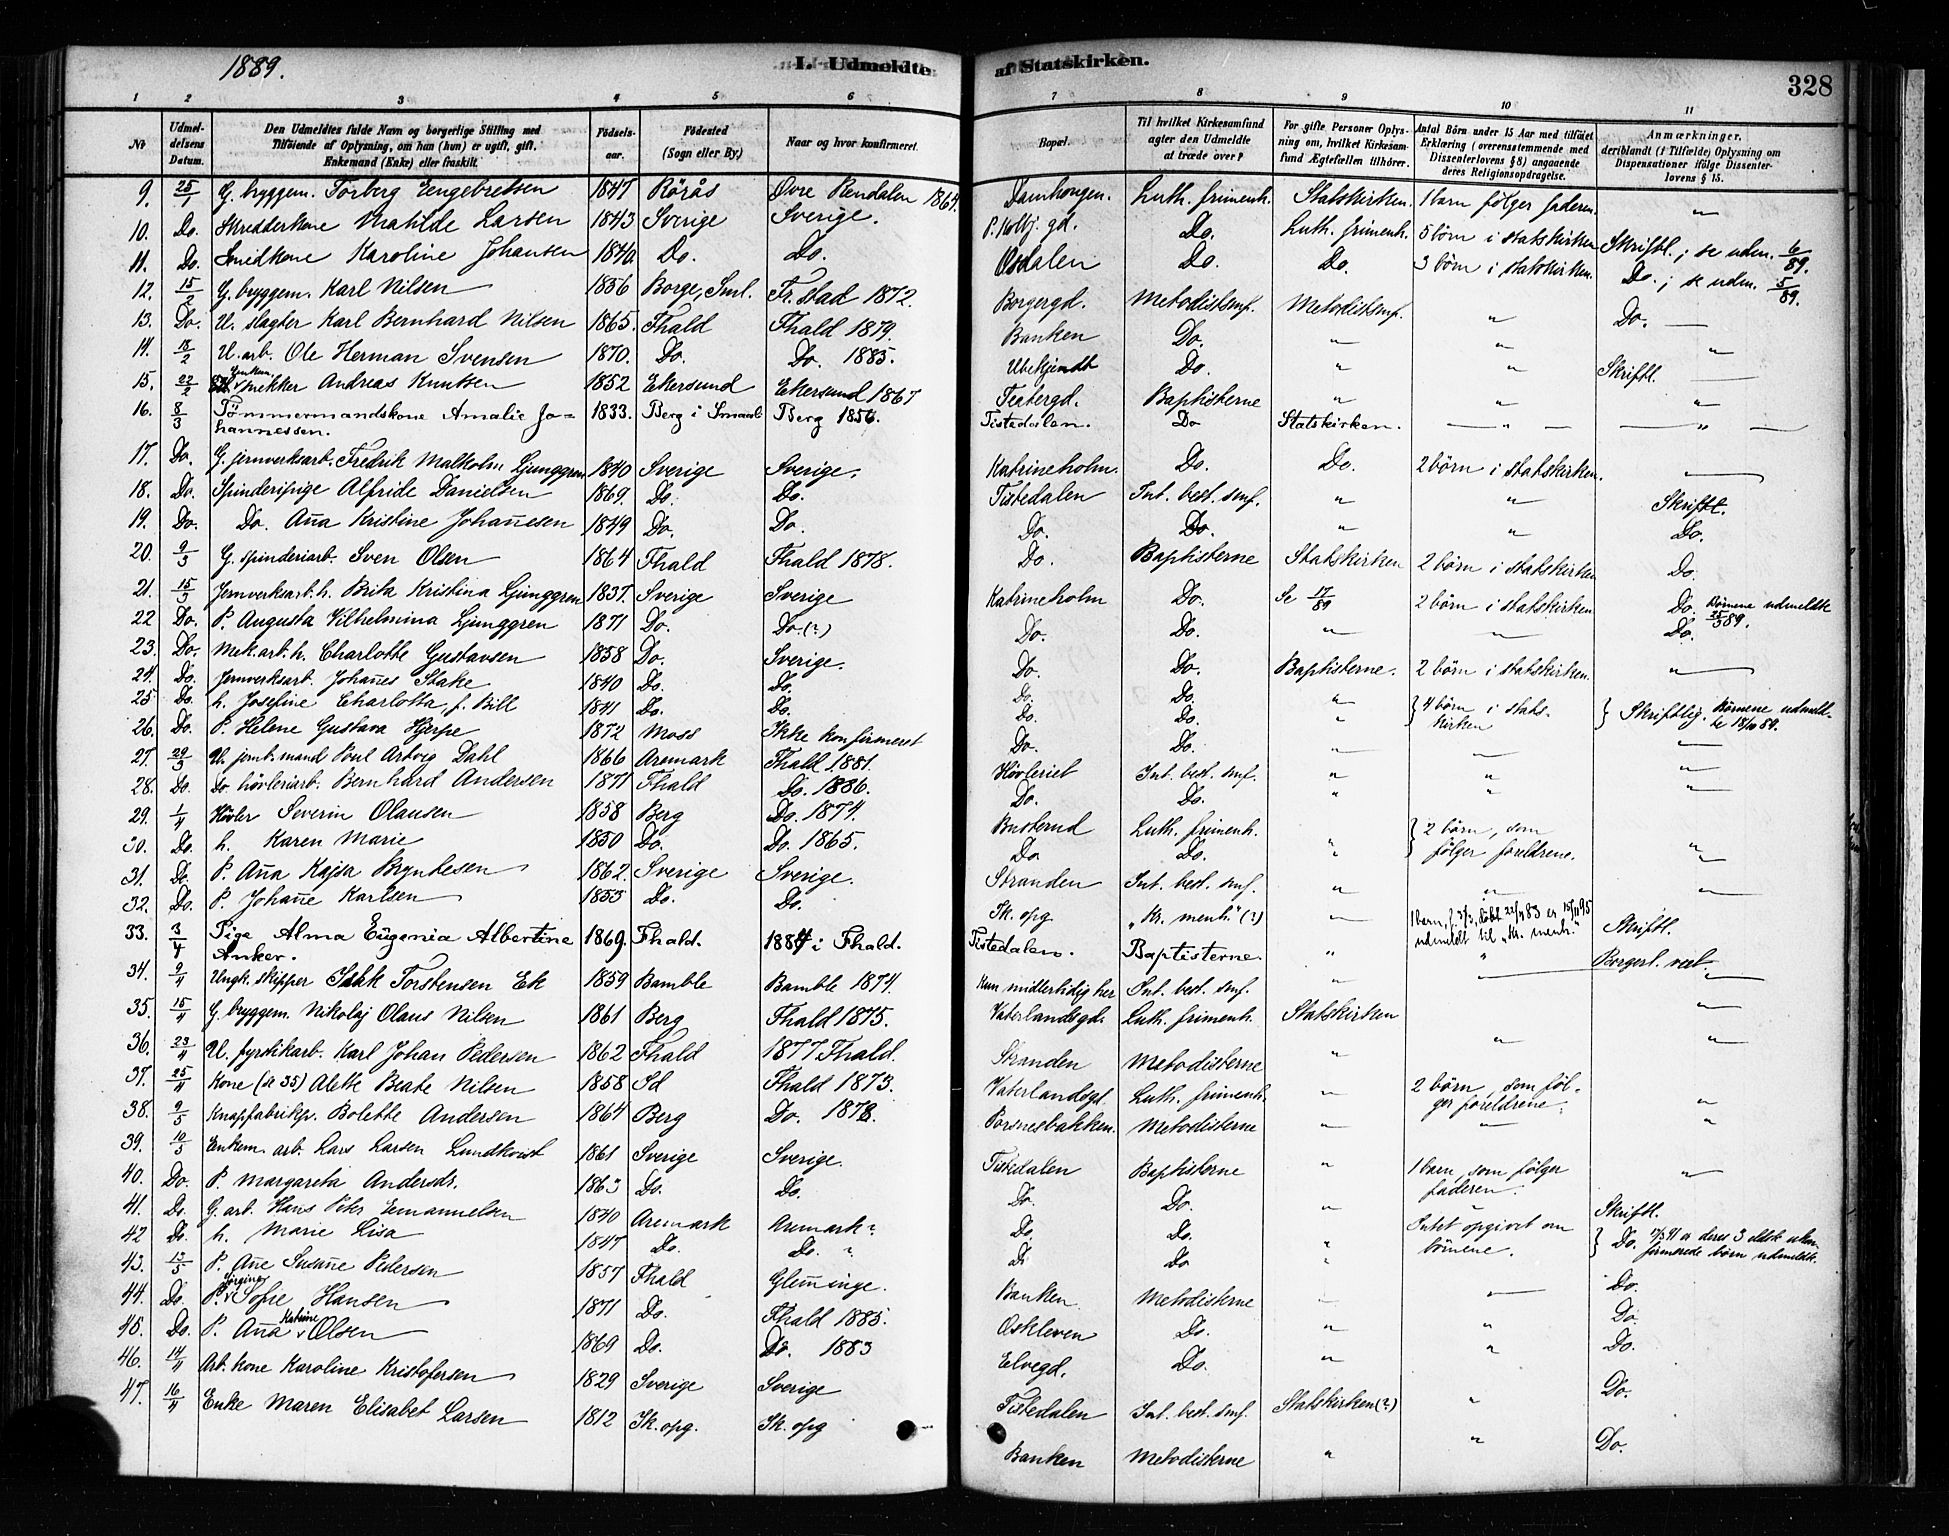 1889.
I. Udmeldte
af Statskirken.
328
1 2 3 4 5 6 7 8 9 10 11
No
Udmel-
delsens
Datum.
Den Udmeldtes fulde Navn og borgerlige Stilling med
Tilføiende af Oplysning, om han (hun) er ugift, gift,
Enkemand (Enke) eller fraskilt.
Fødsels-
aar.
Fødested
(Sogn eller By.)
Naar og hvor konfirmeret.
Bopæl.
Til hvilket Kirkesamfund
agter den Udmeldte
at træde over?
For gifte Personer Oplys-
ning om, hvilket Kirkesam-
fund Ægtefællen tilhører.
Antal Børn under 15 Aar med tilføiet
Erklæring (overensstemmende med
Dissenterlovens § 8) angaaende
deres Religionsopdragelse.
Anmærkninger,
deriblandt (i Tilfælde) Oplysning om
Dispensationer ifølge Dissenter-
lovens § 15.
9. 25/1 G. bryggem. Torberg Engebretsen 1847 Rörås Øvre Rendalen 1864. Damhougen. Luth. frimenh. Statskirken. 1 barn følger faderen. "
10. Do. Skredderkone Matilde Larsen 1843 Sverige Sverige. P. Kolbj. gd. Do. Luth. frimenh. 5 börn i statskirken Skriftl.; se udm. 6/89.
11. Do. Smidkone Karoline Johansen 1840 Do. Do. Osdalen Do. Do. 3 börn i statskirken. Do.; se udm. 5/89.
12. 15/2 G. bryggem. Karl Nilsen 1856 Borge, Sml. Fr.stad 1872. Borgergd. Metodistsmf. Metodistsmf. " Do.
13. Do. U. slagter Karl Bernhard Nilsen 1865. Fhald Fhald 1879. Banken Do. " " "
14. 18/2 U. arb. Ole Herman Svensen 1870. Do. Do. 1885. Ubekjendt Do. " " Skriftl.
15. 22/2 Snekker Andreas Knutsen 1852 Ekersund Ekersund 1867 Tistergd. Baptisterne " " "
16. 8/3 Tömmermandskone Amalie Jo=
hannessen. 1833. Berg i Smaal. Berg 1856. Tistedalen. Do Statskirken. " "
17. Do. G. jernverksarb. Fredrik Malkolm Ljunggren 1840 Sverige Sverige. Katrineholm. Do. Do. 2 börn i statskirken.
18. Do. Spinderipige Alfride Danielsen 1869. Do. Do. Tistedalen Int. best. smf. " " Skriftl.
19. Do. Do. Aña Kristine Johañesen 1849 Do. Do. Do. Do. " " Do.
20. 9/3 G. spinderiarb. Sven Olsen 1864 Fhald Fhald 1878. Do. Baptisterne Statskirken 2 börn i statskirken Do.
21. 15/3 Jernverksarb.h. Brita Kristina Ljunggren 1837. Sverige Sverige Katrineholm Do. Se 17/89 2 börn i statskirken Do. Börnene udmeldte 25/5 89.
22 Do. P. Augusta Vilhelmina Ljunggren 1871 Do. Do. (?) Do. Do. " Do.
23. Do. Mek.arb.h. Charlotte Gustavsen 1858 Do. Sverige. Do. Do. Baptisterne. 2 börn i statskirken. "
24. Do. Jernverksarb. Johañes Stake 1840 Do. Do. Do. Do. " } 4 börn i stats-
kirken } Skriftlig. Börnene udmeld-
te 18/10 89.
25 Do. h. Josefine Charlotta, f. Bill 1841 Do. Do. Do. Do. "
26. Do. P. Helene Gustava Hjerpe 1872 Moss Ikke konfirmeret Do. Do. "
27. 29/3 U. jernb.mand Poul Artvig Dahl 1866 Aremark Fhald 1881. Høvleriet Int. best. smf. " " "
28. Do. Do høvleriarb. Bernhard Andersen 1871 Fhald Do. 1886. Do. Do. " " "
29. 1/4 Høvler Severin Olausen 1858 Berg Do. 1874. Busterud Luth. frimenh. " } 2 börn, som
følger foreldrene. "
30. Do. h. Karen Marie 1850 Do. Do. 1865. Do. Do. "
31. Do. P. Aña Kajsa Bryntesen 1862. Sverige Sverige. Stranden Int. best. smf. " " "
32. Do. P. Johañe Karlsen 1855 Do. Do. Ik. opg "Kr. menh." (?) 1 barn, döbt 22/4 83 er 15/11 95
udmeldt til "Kr. menh." Skriftl.
33. 3/4 Pige Alma Eugenia Albertine
Anker. 1869. Fhald. 1884 i Fhald. Tistedalen. Baptisterne. " " Borgerl. viet.
34. 9/4 Ungk. skipper Isak Torstensen Ek 1859 Bamble Bamble 1874. Kun midlertidig her Int. best. smf. "
35. 15/4 G. bryggem. Nikolaj Olaus Nilsen 1861 Berg Fhald 1875. Vaterlandsgd. Luth. frimenh. Statskirken "
36. 23/4 U. fyrstikarb. Karl Johan Pedersen 1862 Fhald 1877 Fhald. Stranden Metodisterne " " "
37. 25/4 Kone (se 35) Alette Beate Nilsen 1858 Id Fhald 1873. Vaterlandsgd. Luth. frimenh. " 2 börn, som føl-
ger foreldrene. "
38. 9/5 Knapfabrikp. Bolette Andersen 1864 Berg Do. 1878. Porsnesbakken. Metodisterne " " "
39. 10/5 Enkem. arb. Lars Larsen Lundkvist 1861 Sverige Sverige. Tistedalen Baptisterne " 1 barn, som følger
faderen. "
40. Do. P. Margareta Andersdr. 1863 Do. Do. Do. Do. " " Skriftl.
41. Do. G. arb. Hans Peter Emanuelsen 1840 Aremark Aremark? Do. Do. " Intet opgivet om
börnene. } Do. 17/3 91 er deres 3 eldste ukon-
firmerede børn udmeldt.
42 Do. h. Marie Lisa 1847 Do. Do. ? Do Do "
43. 13/5 P. Añe Susañe Pedersen 1857 Fhald Glem̃inge. Banken Metodisterne Do.
44. Do. P. Jørgine Sofie Hansen 1871 Do. Fhald 1885. Oskleven Do. " " Do.
45. Do. P. Aña Katrine Olsen 1869 Do. Do. 1883 Elvegd. Do. " " Do.
46. 14/4 Arb. kone Karoline Kristofersen 1829 Sverige Sverige Tistedalen Int. best. smf. Statskirken (?) " Do.
47. 16/4 Enke Maren Elisabet Larsen 1812 Ik. opg. Ik. opg Banken Metodisterne " " Do.